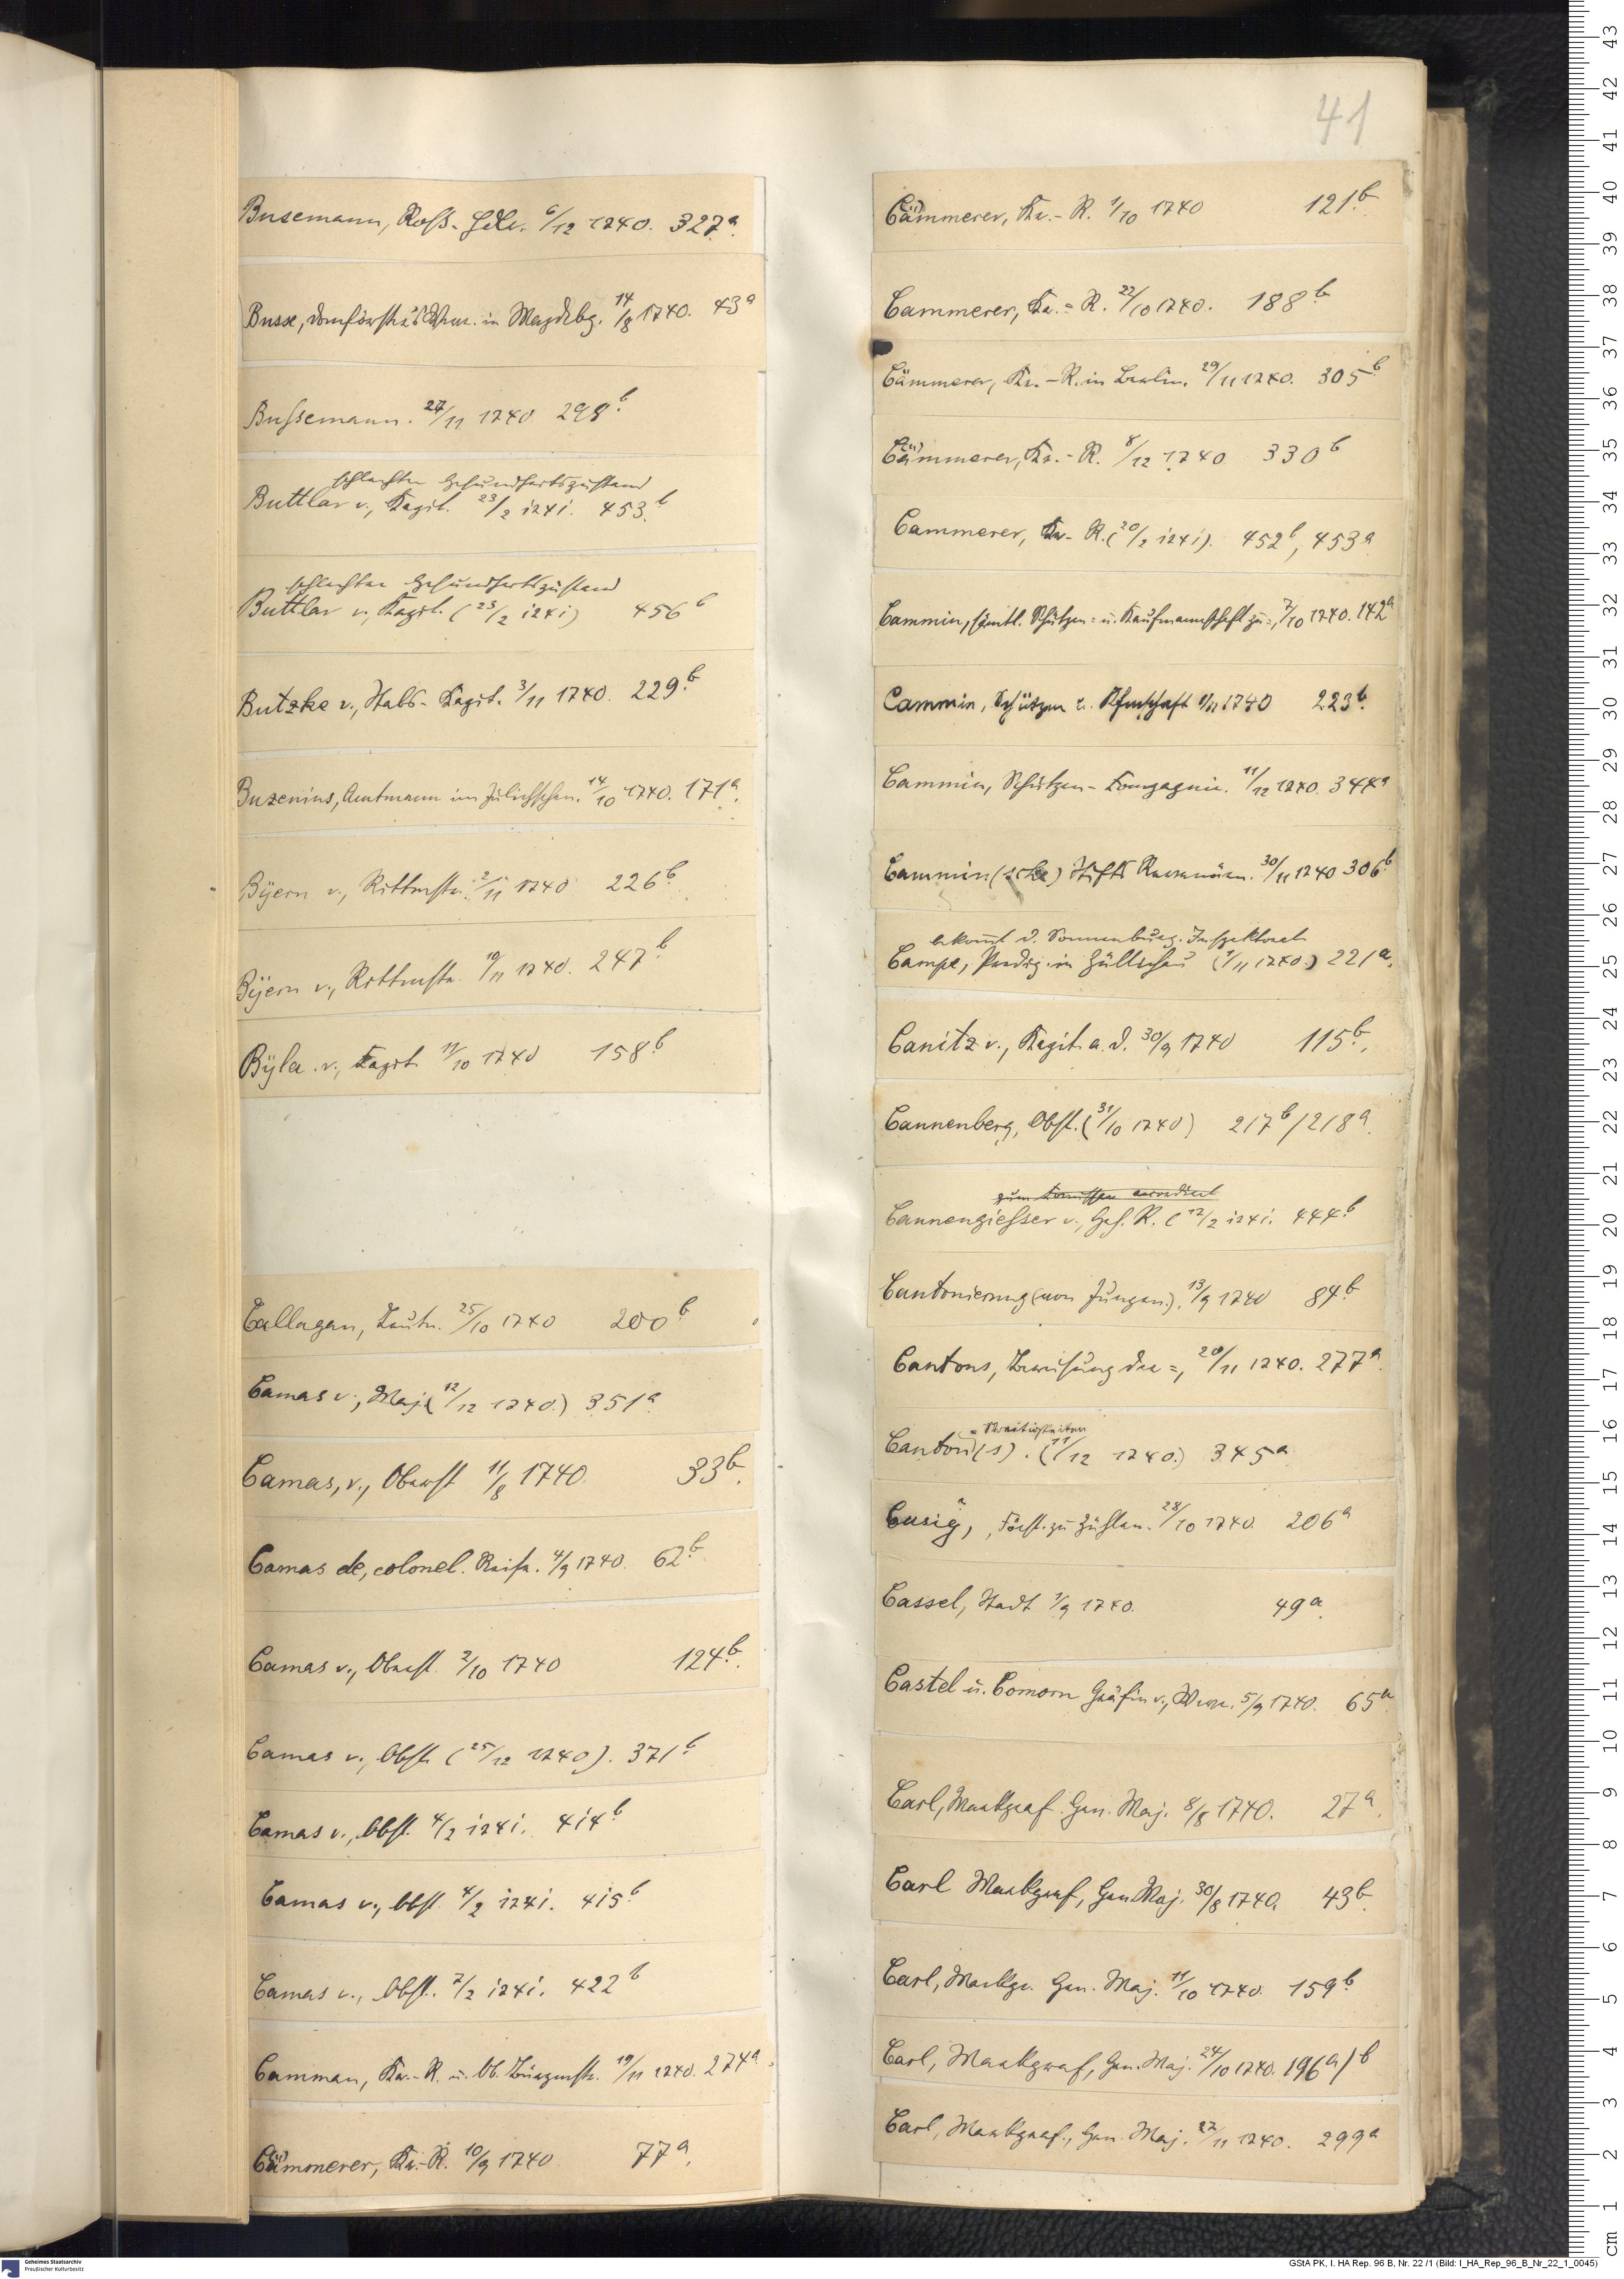 41
Busemann, Roß-Hdlr. 6/12 1740. 327a.
Busse, in Magdebg. 14/8 1740. 43a
Bussemann. 27/11 1740 298b.
schlechter Gesundheitszustand
Buttlar v., Kapit. 23/2 1741. 453b.
schlechter Gesundheitszustand
Buttlar v., Kapit. (23/2 1741) 456b
Butzke v., Stabs-Kapit. 3/11 1740. 229b.
Buzenius, Amtmann im Jülichschen. 14/10 1740. 171a.
Bÿern v., Rittmstr. 2/11 1740 226b.
Bÿern v., Rittmstr. 10/11 1740. 247b
Bÿla v., Kapit. 11/10 1740 158b
Callagan, Leutn. 25/10 1740 200b
Camas v., Maj. (12/12 1740.) 351a
Camas, v., Oberst 11/8 1740. 33b.
Camas de, colonel. Reise. 4/9 1740. 62b.
Camas v., Oberst. 2/10 1740 124b.
Camas v., Obst. (25/12 1740). 371b
Camas v., Obst. 4/2 1741. 414b
Camas v., Obst. 4/2 1741. 415b
Camas v., Obst. 7/2 1741. 422b
Camman, Kr.-R. u. Ob. Bürgermstr. 19/11 1740. 274a
Cämmerer, Kr.-R. 10/9 1740 77a.
Cämmerer, Kr.-R. 1/10 1740 121b.
Cammerer, Kr.-R. 22/10 1740. 188b
Cämmerer, Kr.-R. in Berlin. 29/11 1740. 305b
Cämmerer, Kr.-R. 8/12 1740 330b
Cammerer, Kr.-R. (20/2 1741). 452b, 453a
Cammin, sämtl. Schützen- u. Kaufmannschaft zu =, 7/10 1740. 142a
Cammin, Schützen u. Kfmschaft 1/11 1740 223b.
Cammin, Schützen-Compagnie. 11/12 1740. 344a
Cammin(sche) Stifts 30/11 1740 306b
bekommt d. Sonnenburg. Inspektorat
Campe, Predig. in Züllichau (1/11 1740.) 221a.
Canitz v., Kapit. a. D. 30/9 1740 115b.
Cannenberg, Obst. (31/10 1740) 217b/218a.
zum
Cannengiesser v., Geh. R. (17/2 1741. 444b
Cantonierung (von Jungen). 13/9 1740 84b
Cantons, der =, 20/11 1740. 277a.
= Streitigkeiten
Canton(s). (11/12 1740.) 345a
Casig, Först. zu 28/10 1740. 206a
Cassel, Stadt 1/9 1740. 49a.
Castel u. Comorn Gräfin v., Wwe. 5/9 1740. 65a.
Carl, Markgraf. Gen. Maj. 8/8 1740. 27a.
Carl Markgraf, Gen. Maj. 30/8 1740. 43b.
Carl, Markgr. Gen. Maj. 11/10 1740. 159b.
Carl, Markgraf, Gen. Maj. 24/10 1740. 196a/b
Carl, Markgraf., Gen. Maj. 27/11 1740. 299a
Geheimes Staatsarchiv
Preußischer Kulturbesitz
GStA PK, I. HA Rep. 96 B, Nr. 22 /1 (Bild: I_HA_Rep_96_B_Nr_22_1_0045)